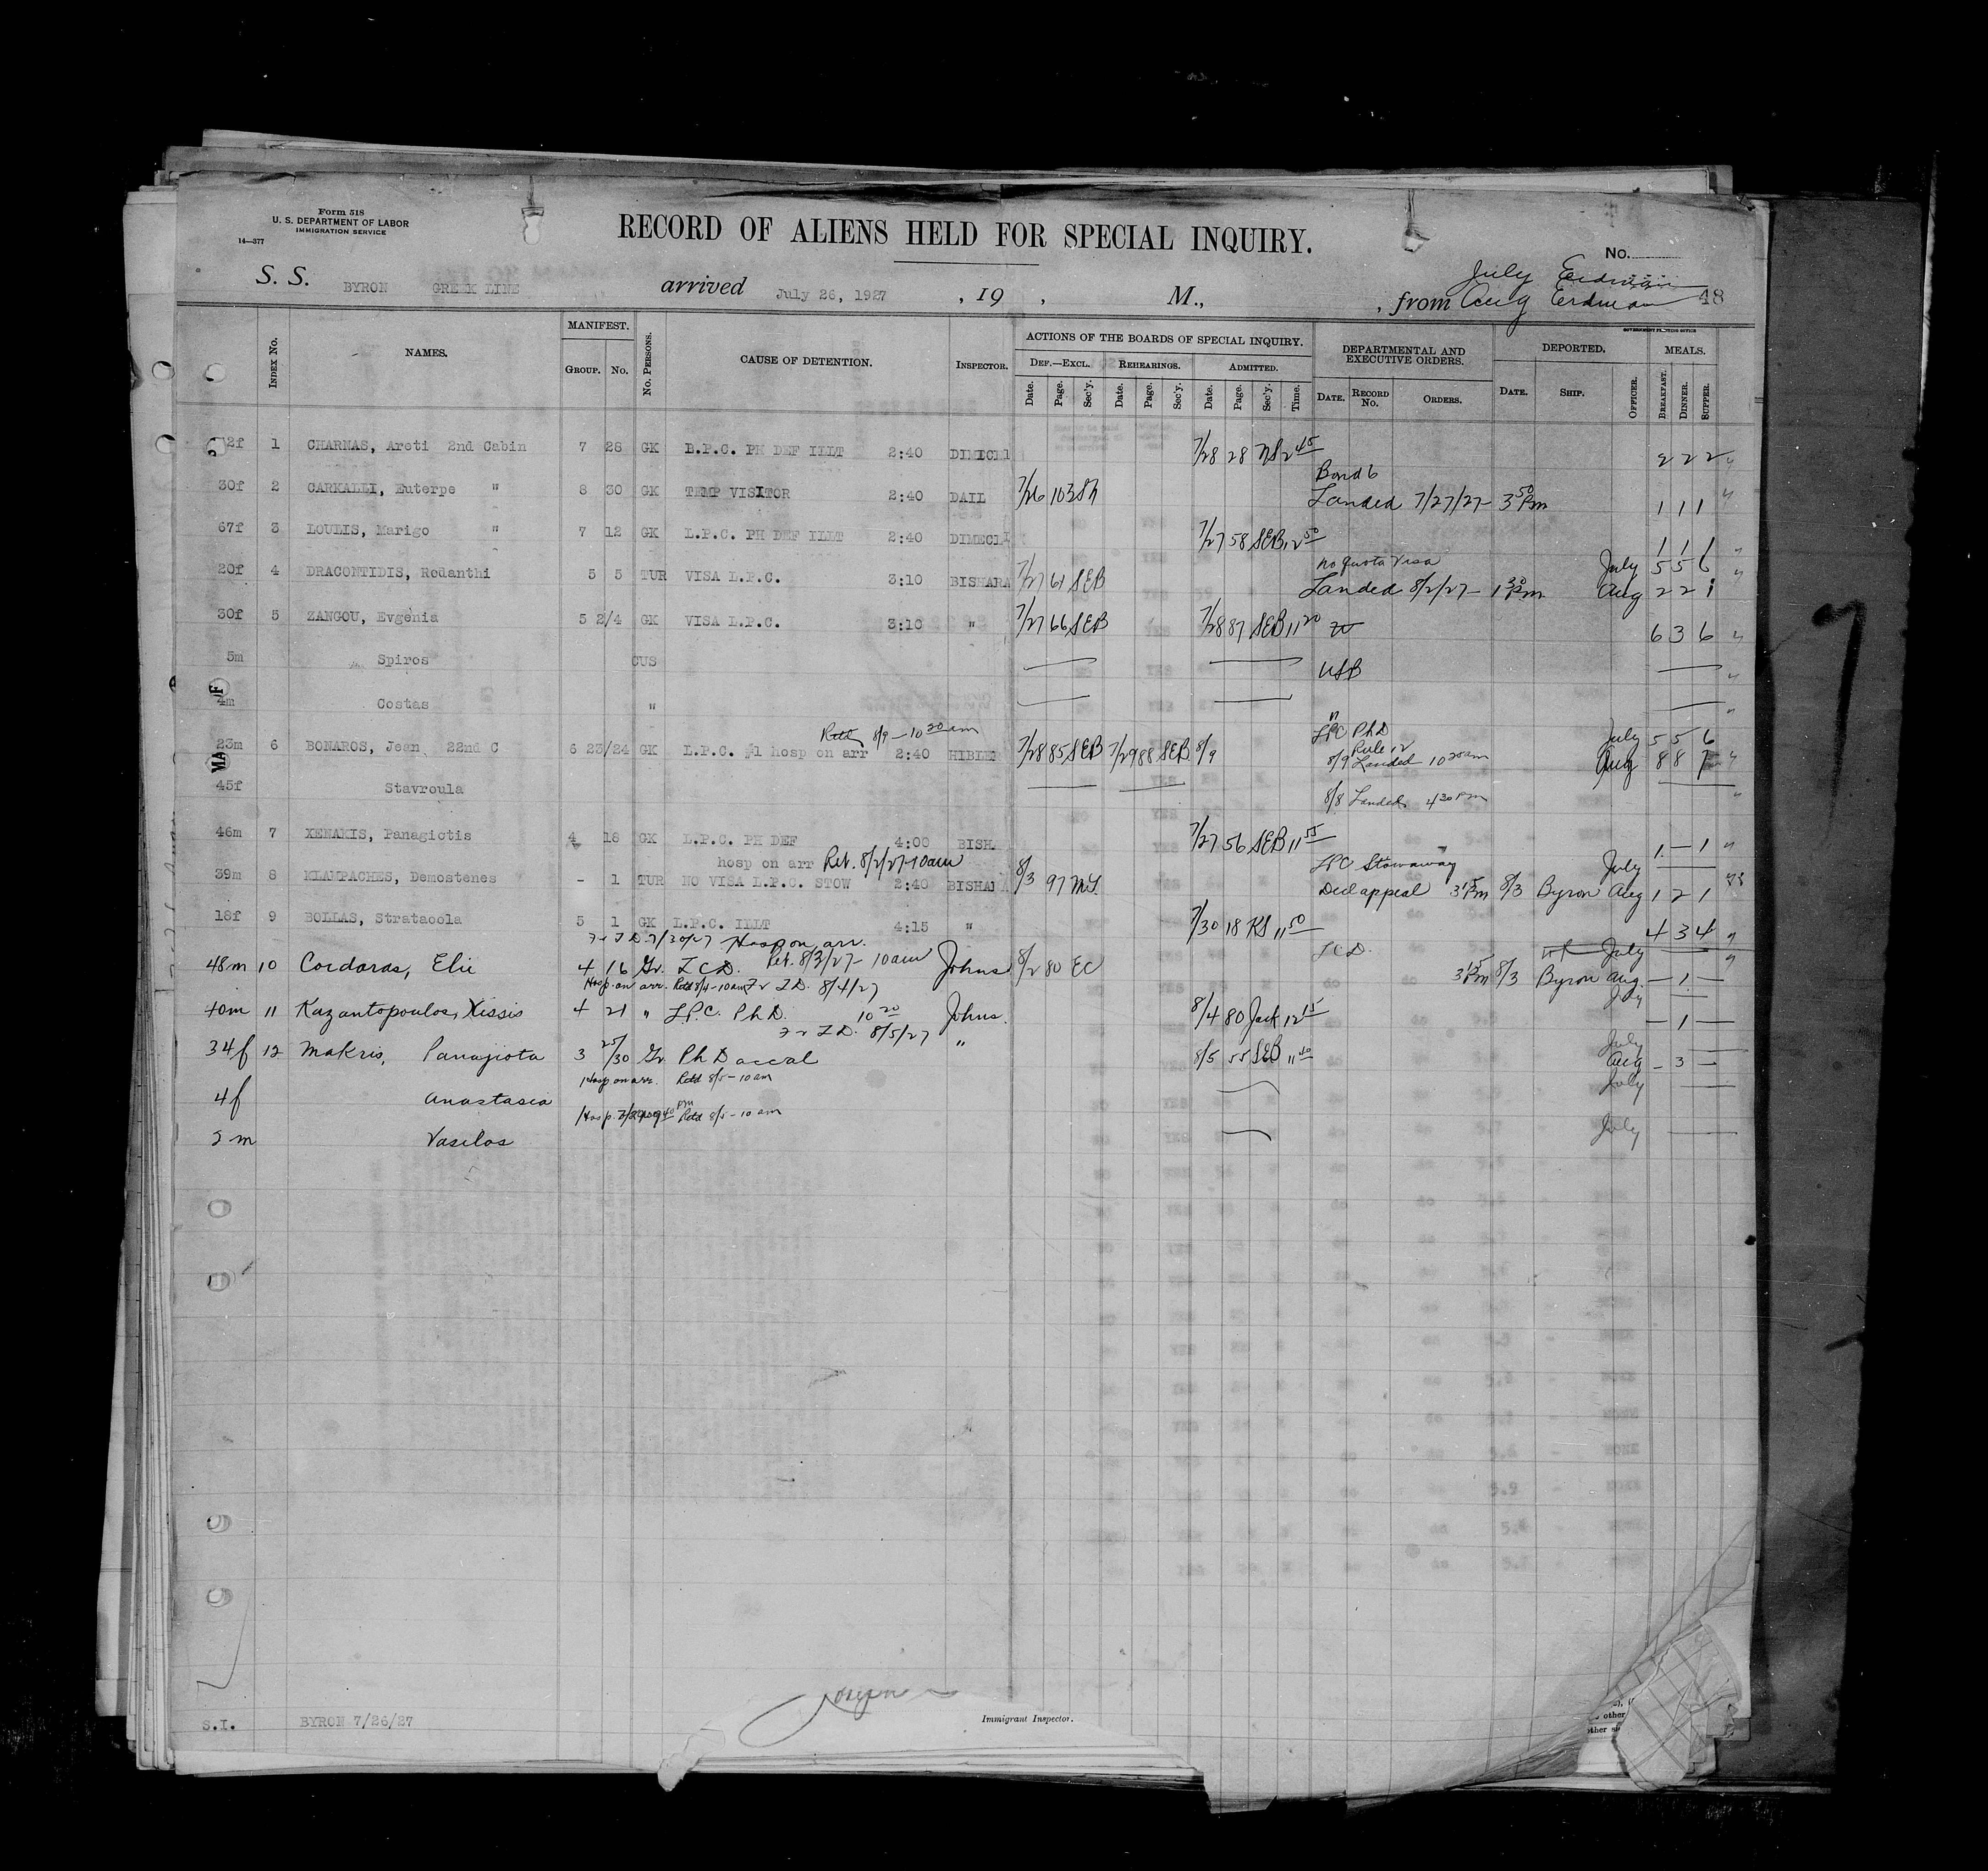 Form 518
U. S. DEPARTMENT OF LABOR
IMMIGRATION SERVICE
14—377
RECORD OF ALIENS HELD FOR SPECIAL INQUIRY.
No.
S. S. BYRON GREEK LINE arrived July 26, 1927 , 19 , M., , from July Erdman
Aug Erdman 48
INDEX No. NAMES. MANIFEST. GROUP. No. No. PERSONS. CAUSE OF DETENTION. INSPECTOR. ACTIONS OF THE BOARDS OF SPECIAL INQUIRY. DEPARTMENTAL AND EXECUTIVE ORDERS. DEPORTED. GOVERNMENT PRINTING OFFICE MEALS.
DEF.—EXCL. REHEARINGS. ADMITTED.
Date. Page. Sec'y. Date. Page. Sec'y. Date. Page. Sec'y. Time. DATE. RECORD No. ORDERS. DATE. SHIP. OFFICER. BREAKFAST. DINNER. SUPPER.
2f 1 CHARNAS, Areti 2nd Cabin 7 28 GK L.P.C. PH DEF ILLT 2:40 DIMECLI 7/28 28 NS 2 45 2 2 2
Bond 6
30f 2 CARKALLI, Euterpe " 8 30 GK TEMP VISITOR 2:40 DAIL 7/26 103 Sh Landed 7/27/27 - 3 50 Pm 1 1 1
67f 3 LOULIS, Marigo " 7 12 GK L.P.C. PH DEF ILLT 2:40 DIMECLI 7/27 58 SEB 12 50 1 1 1
no quota visa July 5 5 6
20f 4 DRACONTIDIS, Rodanthi 5 5 TUR VISA L.P.C. 3:10 BISHARA 7/27 61 SEB Landed 8/2/27 - 1 30 Pm Aug 2 2 1
30f 5 ZANGOU, Evgenia 5 2/4 GK VISA L.P.C. 3:10 " 7/27 66 SEB 7/28 87 SEB 11 20 6 3 6
5m Spiros CUS USB
4m Costas " "
Retd 8/9 - 10 20 am LPC PhD July 5 5 6
23m 6 BONAROS, Jean 22nd C 6 23/24 GK L.P.C. #1 hosp on arr 2:40 HIBLER 7/28 85 SEB 7/29 88 SEB 8/9 Rule 12
8/9 Landed 10 20 am Aug 8 8 7
45f Stavroula 8/8 Landed 4 30 Pm
46m 7 XENAKIS, Panagiotis 4 18 GK L.P.C. PH DEF 4:00 BISH. 7/27 56 SEB 11 55 1 - 1
hosp on arr Ret. 8/2/27-10am LPC Stowaway July
39m 8 KLAMPACHES, Demostenes - 1 TUR NO VISA L.P.C. STOW 2:40 BISHARA 8/3 97 Decl appeal 3 15 Pm 8/3 Byron Aug 1 2 1
18f 9 BOLLAS, Stratacola 5 1 GK L.P.C. ILLT 4:15 " 7/30 18 KS 11 50 4 3 4
7/30/27 Hosp on arr. LCD. July
48m 10 Cordaras, Elie 4 16 Gr. LCD. Ret. 8/3/27 - 10am Johns 8/2 80 EC 3 15 Pm 8/3 Byron Aug. - 1 -
Hosp. on arr. Retd 8/4-10am 8/4/27 July
40m 11 Kazantopoulos, Kissis 4 21 " L.P.C. PhD. 10 20 Johns. 8/4 80 Jack 12 15 - 1 -
8/5/27 July
34f 12 Makris, Panajiota 3 25/30 Gr. PhD " 8/5 55 SEB 11 40 Aug - 3 -
Hosp on arr. Retd 8/5-10 am July
4f Anastasea
Retd 8/5-10 am
2m Vasilos July
S.I. BYRON 7/26/27
Immigrant Inspector.